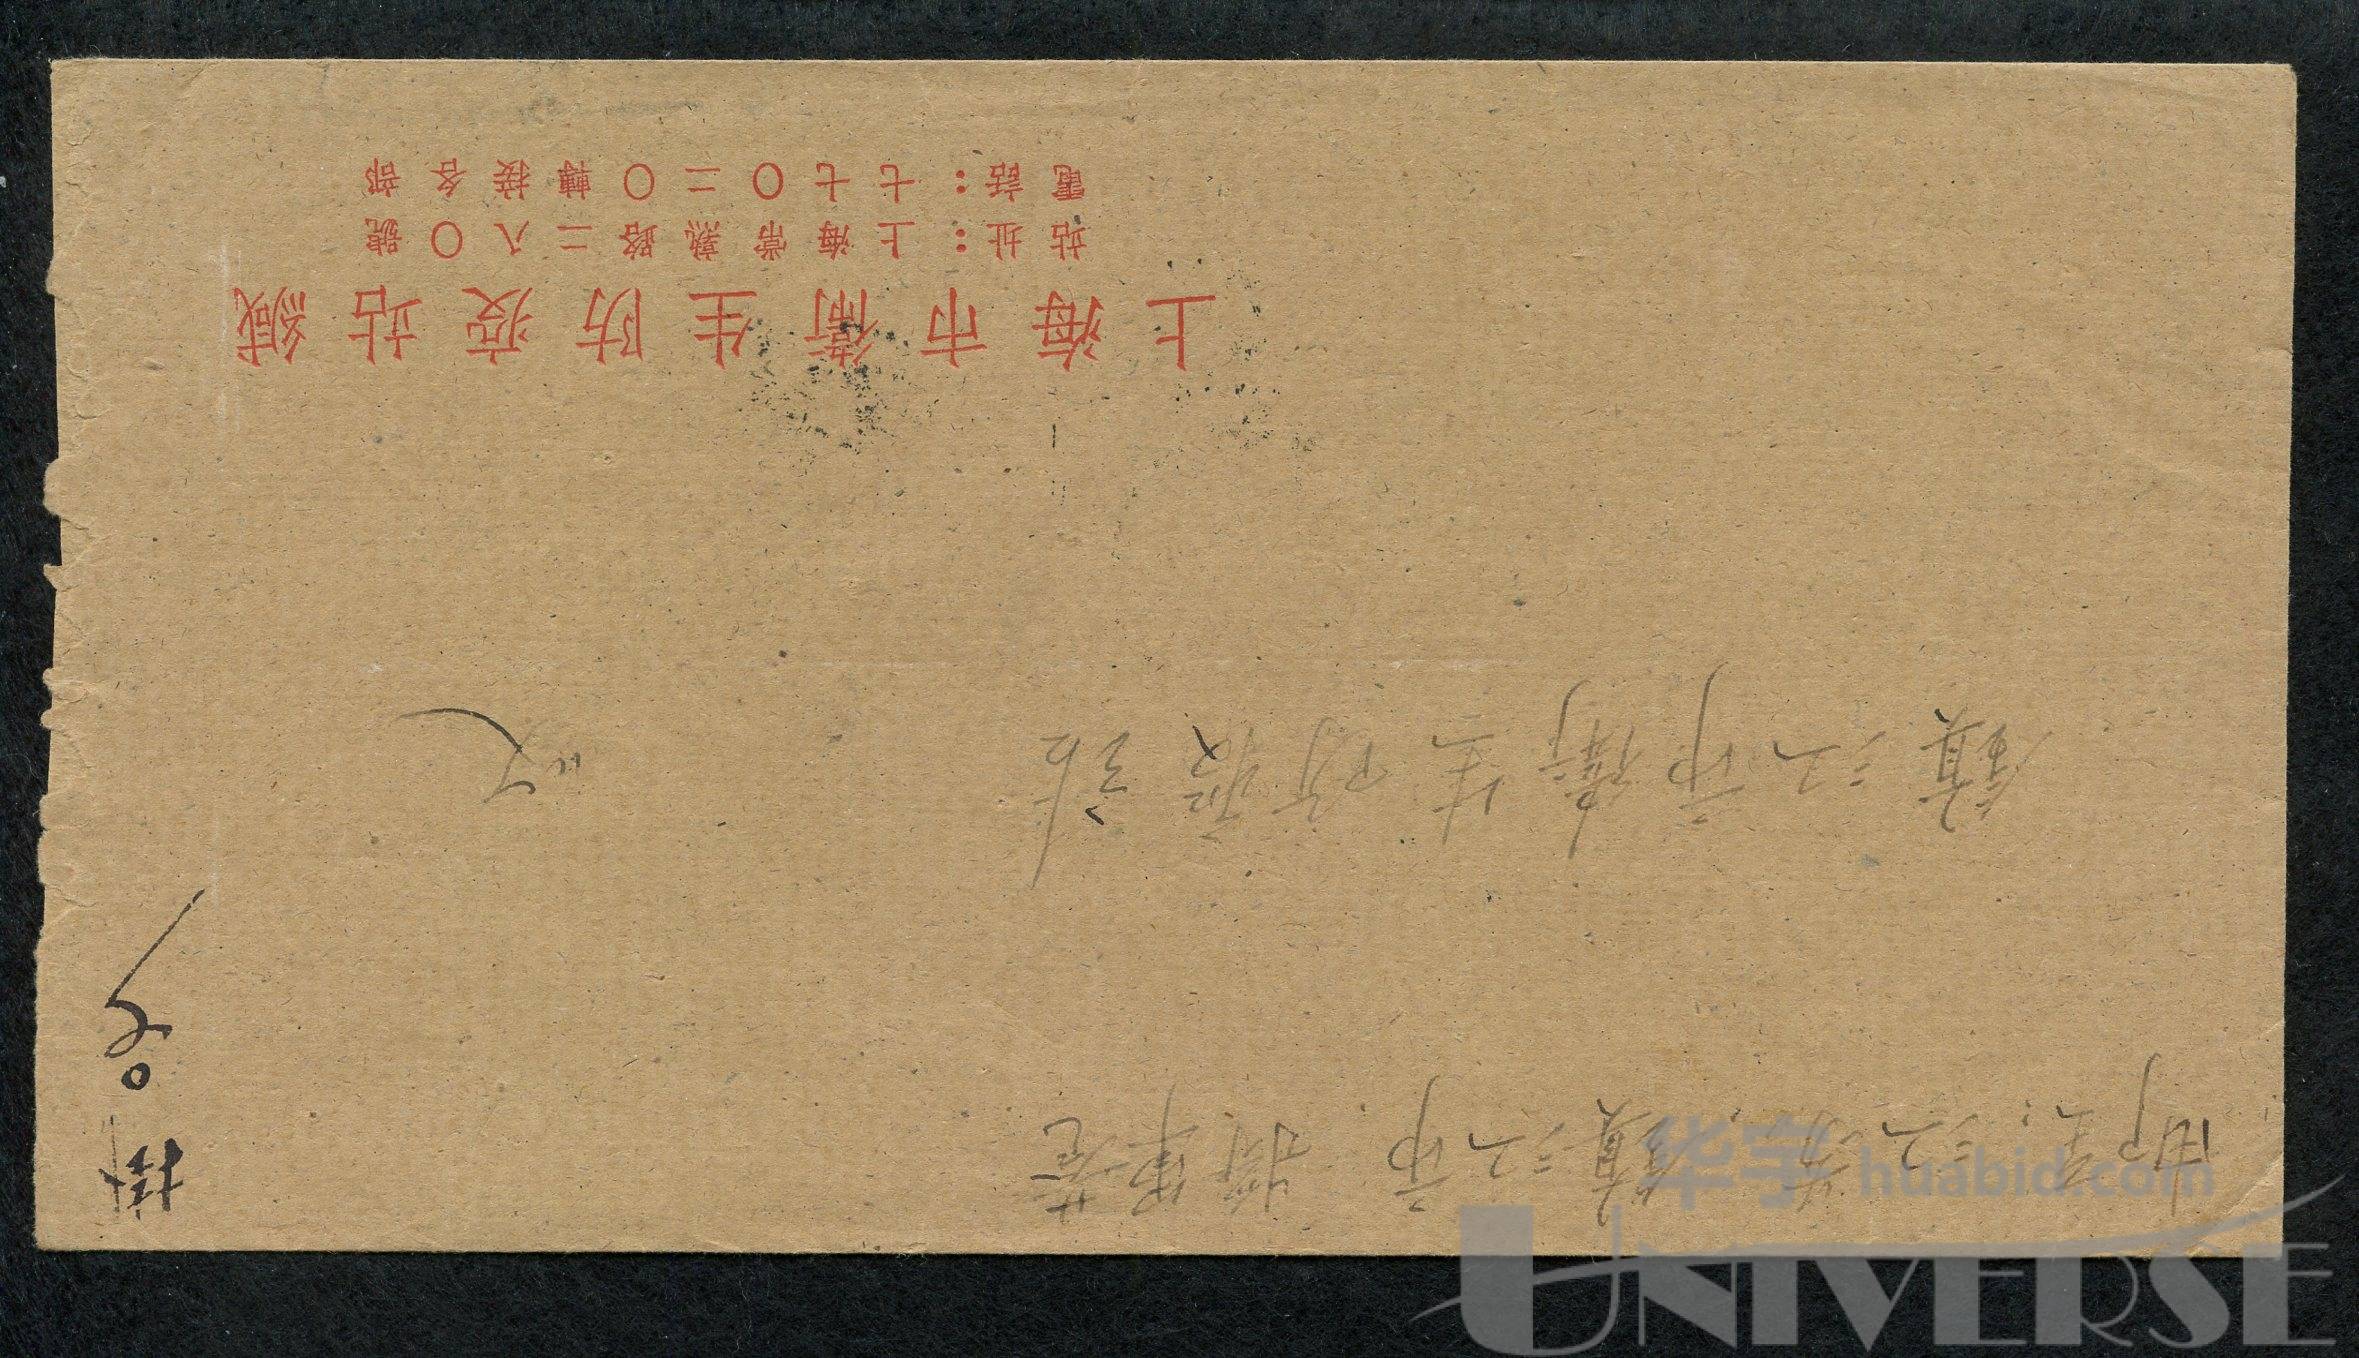 郵呈：江蘇鎮江市
鎮江市衛生防疫站
收
掛
上海市衞生防疫站緘
站址：上海常熟路二八〇號
電話：七七〇二〇轉接各部
华宇 huabid.com
UNIVERSE